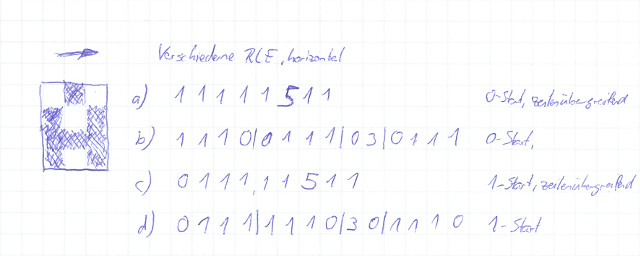 Verschiedene RLE, horizontal
a) 1 1 1 1 1 5 1 1 0-Start, zeilenübergreifend
b) 1 1 1 0|0 1 1 1|0 3|0 1 1 1 0-Start,
c) 0 1 1 1, 1 1 5 1 1 1-Start, zeilenübergreifend
d) 0 1 1 1|1 1 1 0|3 0|1 1 1 0 1-Start